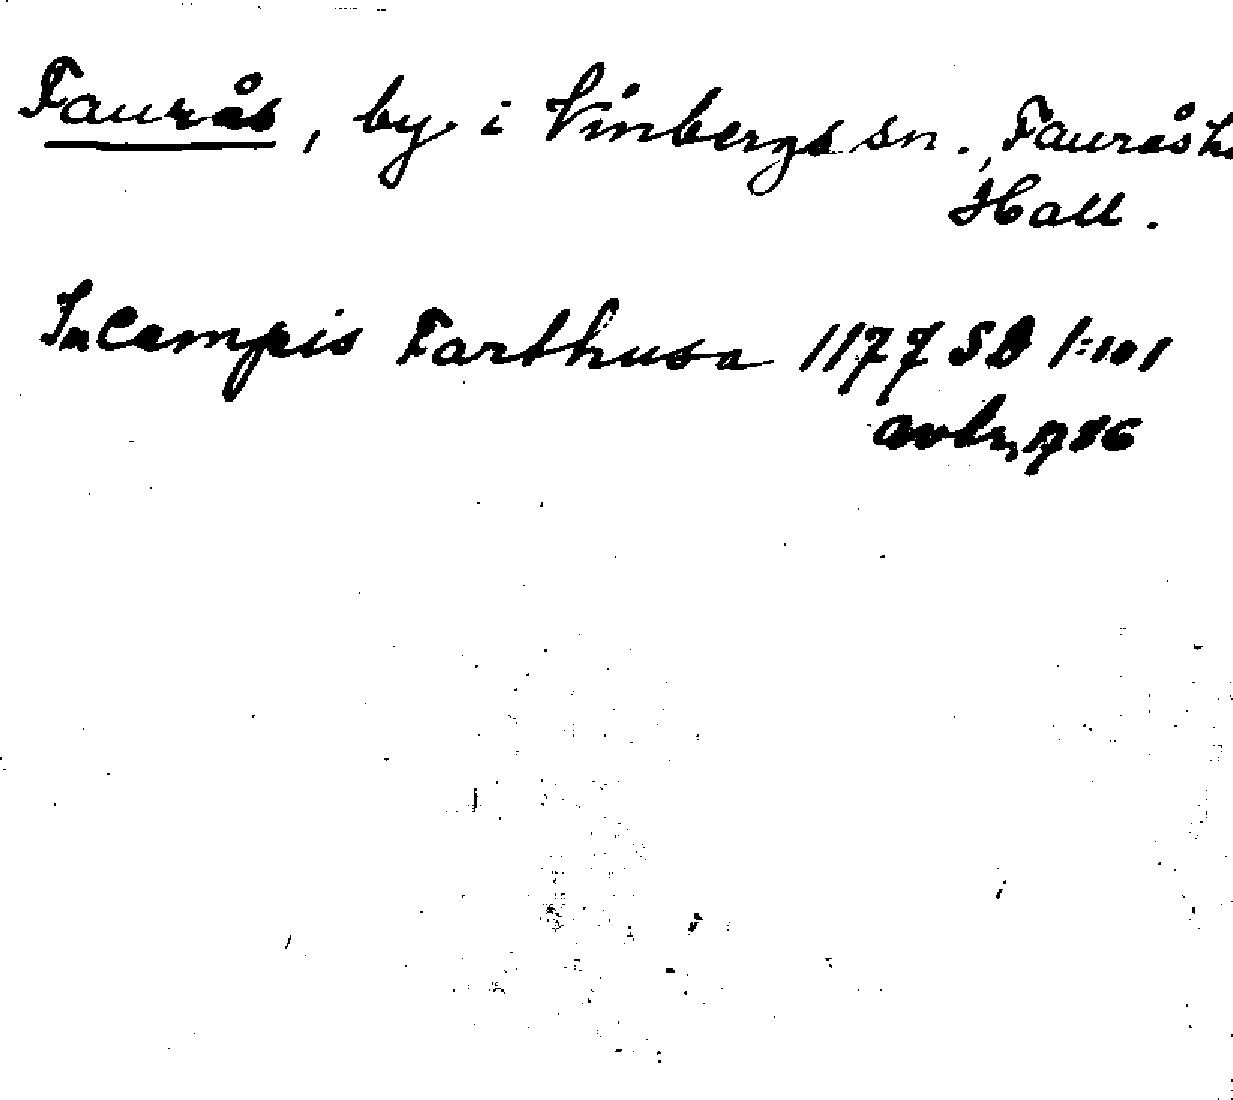 Faurås, by i Vinbergs sn., Faurås h.
Hall.
In Campis Farthusa 1177 SD 1:101
avtr, 1786